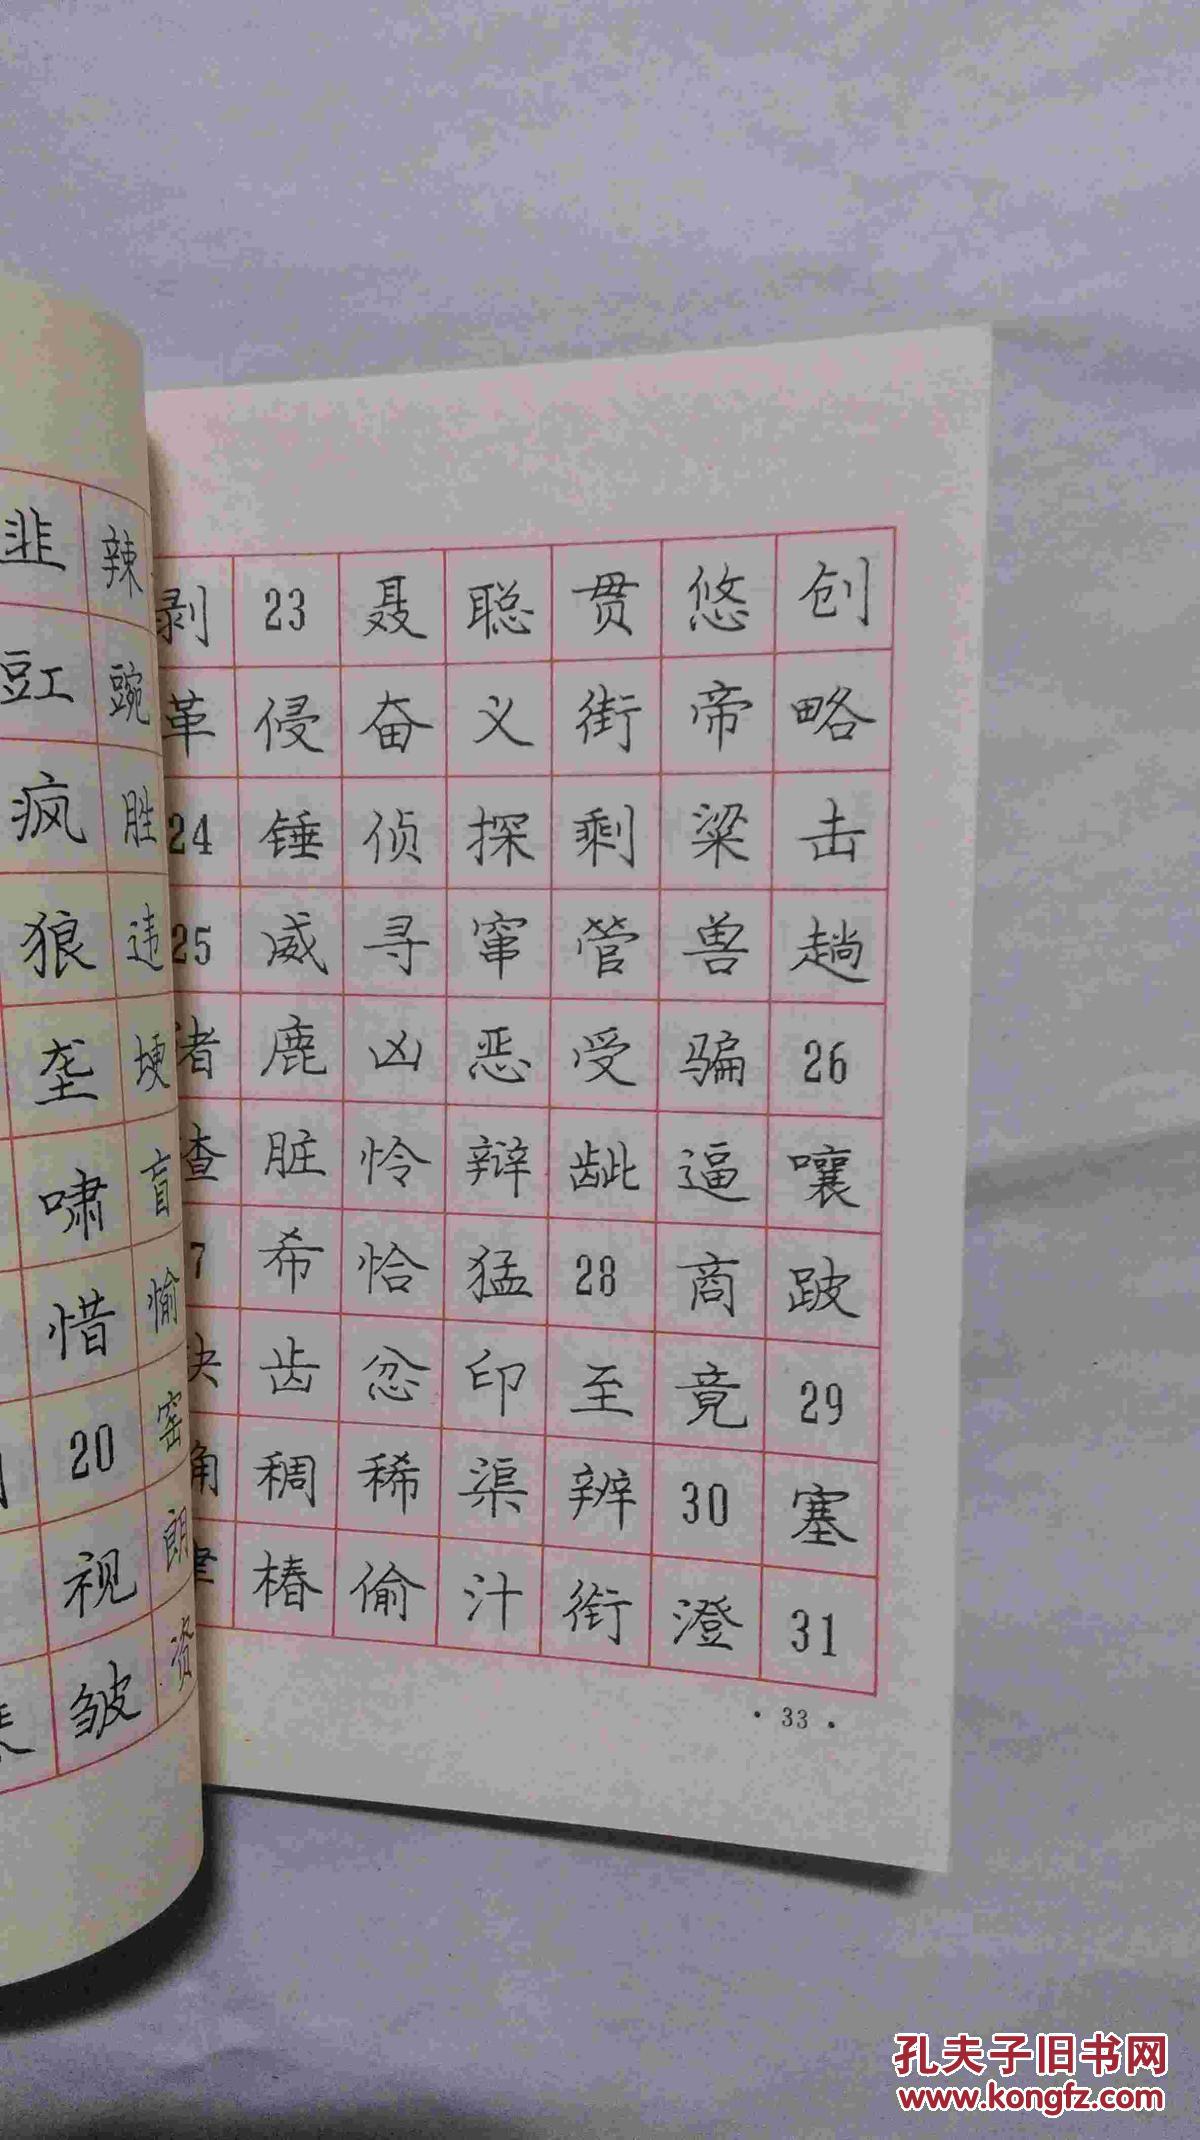 韭 辣
豇 豌
疯 胜
狼 违
垄 埂
啸 盲
惜 愉
20 窑
视 朗
皱 资
剥 23 聂 聪 贯 悠 创
革 侵 奋 义 街 帝 略
24 锤 侦 探 剩 梁 击
25 威 寻 窜 管 兽 趟
鹿 凶 恶 受 骗 26
脏 怜 辩 龇 逼 嚷
7 希 恰 猛 28 商 跛
齿 忿 印 至 竟 29
稠 稀 渠 辨 30 塞
椿 偷 汁 衔 澄 31
· 33 ·
孔夫子旧书网
www.kongfz.com